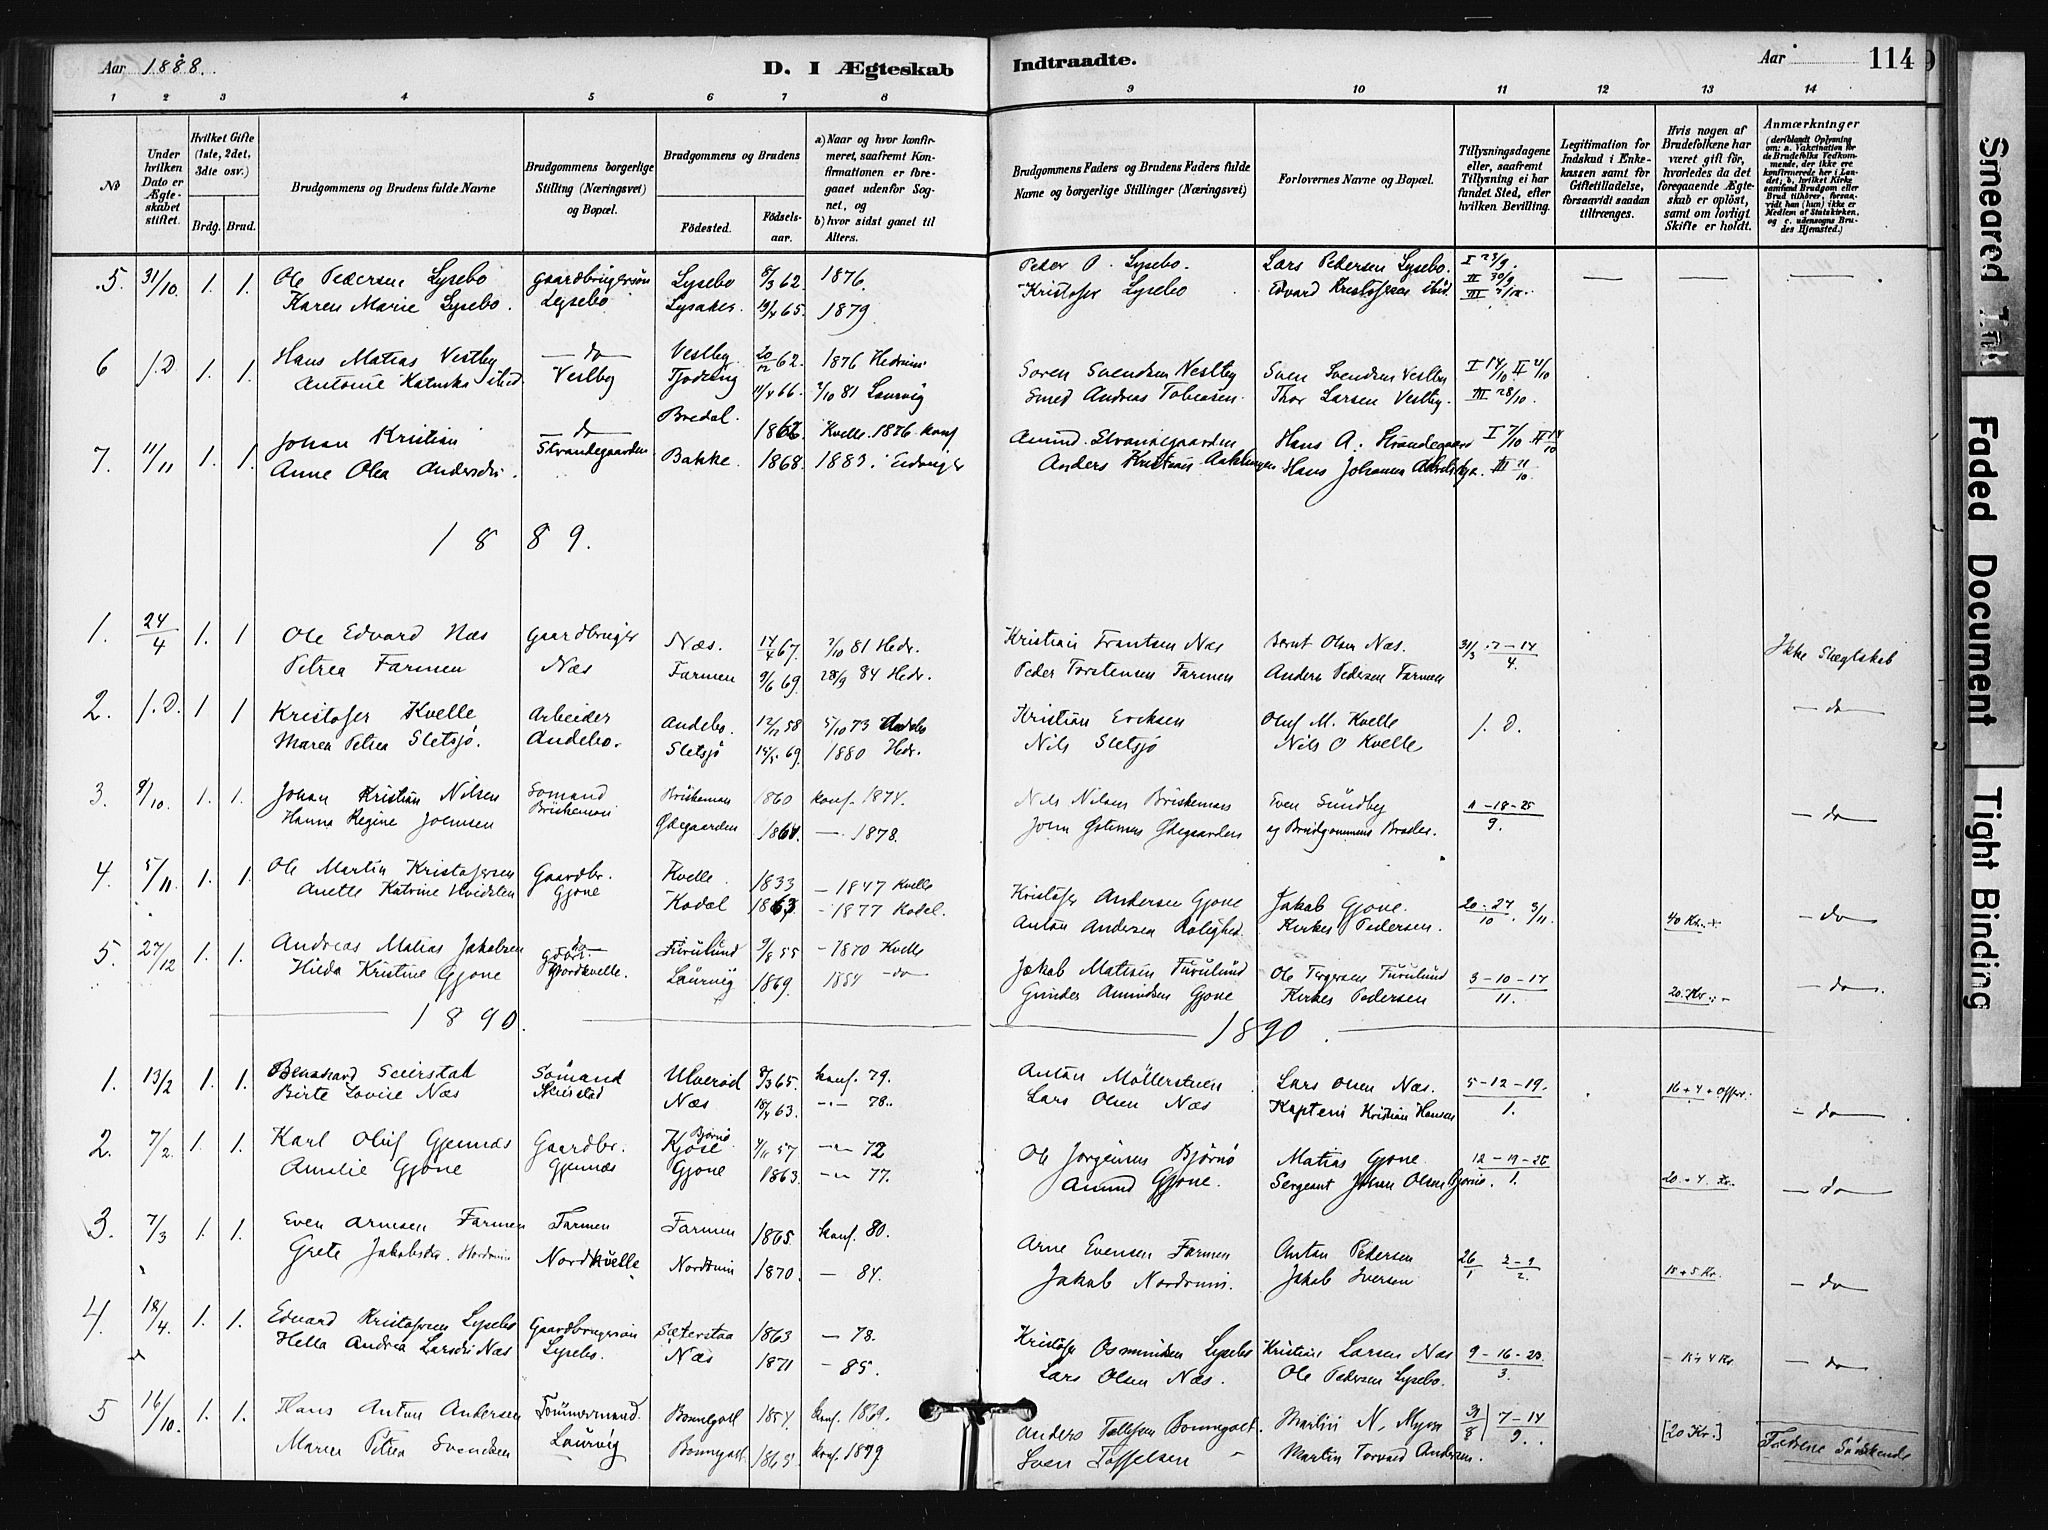 Aar 1888.
D. I Ægteskab
Indtraadte.
Aar
114
1 2 3 4 5 6 7 8
9 10 11 12 13 14
No
Under hvilken Dato er Ægteskabet stiftet.
Hvilket Gifte (1ste, 2det, 3die osv.)
Brdg. Brud.
Brudgommens og Brudens fulde Navne
Brudgommens borgerlige Stilling (Næringsvei) og Bopæl.
Brudgommens og Brudens
Födested.
Födselsaar.
a) Naar og hvor konfirmeret, saafremt Konfirmationen er foregaaet udenfor Sognet, og
b) hvor sidst gaaet til Alters.
Brudgommens Faders og Brudens Faders fulde Navne og borgerlige Stillinger (Næringsvei)
Forlovernes Navne og Bopæl.
Tillysningsdagene eller, saafremt Tillysning ei har fundet Sted, efter hvilken Bevilling.
Legitimation for Indskud i Enkekassen samt for Giftetilladelse, forsaavidt saadan tiltrænges.
Hvis nogen af Brudefolkene har været gift för, hvorledes da det foregaaende Ægteskab er oplöst, samt om lovligt Skifte er holdt.
Anmærkninger
(deriblandt Oplysning om: a. Vakcination for de Brudefolks Vedkommende, der ikke ere konfirmerede her i Landet; b. hvilket Kirkesamfund Brudgom eller Brud tilhörer, forsaavidt han (hun) ikke er Medlem af Statskirken, og c. udensogns Brudes Hjemsted.)
5. 31/10. 1. 1. Ole Pedersen Lysebo Gaardbrugersön Lysebo 8/3 62 1876. Peder O. Lysebo. Lars Pedersen Lysebo. I 23/9.
Karen Marie Lysebo. Lysebo Lysaker 65. 1879. Kristofer Lysebo Edvard Kristofersen ibid. II 30/9 III
6 s. D. 1. 1. Hans Matias Vestby do Vestby. 20/12 62. 1876 Hedrum. Soren Svendsen Vestby Sven Svendsen Vestby I 14/10 II 21/10
Antonie Vestby Tjodling 11/4 66. 2/10 81 Laurvig Smed Andreas Tobiasen. Thor Larsen Vestby. III 28/10.
7. 11/11 1. 1. Johan Kristian do Bredal. 1862 Kvelle. 1876. konf Amund Strandegaarden Hans A. Strandegaard I 7/10 II 14/10
Anne Olea Andersdr. Strandegaarden Bakke. 1868. 1883. Eidanger Anders Kristian Hans Johannes III 21/10.
1889.
1. 24/4 1. 1 Ole Edvard Næs Gaardbruger Næs. 14/4 67. 2/10 81 Hedr. Kristian Frantsen Næs Bernt Olsen Næs. 31/3 . 7 – 14 / 4. Ikke Slegtskab
Petrea Farmen Næs Farmen 9/6 69. 28/9 84 Hedr. Peder Torstensen Farmen Anders Pedersen Farmen
2. s. D. 1 1 Kristofer Kvelle Arbeider Andebo. 12/12 58 5/10 73 Andebo Kristian Ericksen Oluf M. Kvelle s. D. – do –
Maren Petrea Sletsjö. Andebo. Sletsjö 69. 1880 Hedr. Nils Sletsjö Nils O Kvelle
3. 8/10. 1. 1. Johan Kristian Nilsen Somand Briskemoen 1860 konf. 1874. Nils Nilsen Briskemoen Even Sundby 11 – 18 – 25 / 9. – do
Hanna Regine Johnsen Briskemoen Ödegaarden 1861. – 1878. John Ödegaarden og Brudgommens Broder.
4. 5/11. 1. 1. Ole Martin Kristofersen Gaardbr. Kvelle 1833 – 1847 Kvelle Kristofer Andersen Gjone Jakob Gjone. 20 – 27 / 10 . 3/11 40 Kr. – do
Anette Katrine Hvidsten Gjone Kodal 1863. – 1877 Kodal. Anton Andersen Rolighed. Kirkes. Pedersen.
5. 27/12 1. 1. Andreas Matias Jakobsen do Furulund 9/8 55 – 1870 Kvelle Jakob Matisen Furulund Ole Torgersen Furulund 3 – 10 – 17 / 11. 20. Kr. – do.
Hilda Kristine Gjone Nordkvelle. Laurvig 1869. 1884 do Gunder Amundsen Gjone Kirkes. Pedersen
1890. 1890.
1. 13/2 1. 1. Bernhard Seierstad Sömand Ulveröd 8/3 65. konf. 79. Anton Möllerstuen Lars Olsen Næs. 5 – 12 – 19. / 1. 16 + 4 + Offer. – do
Birte Lovise Næs Seierstad Næs 18/4 63. – 78. Lars Olsen Næs Kaptein Kristian Hansen
2. 7/2. 1. 1. Karl Oluf Gjennæs Gaardbr. Björnö Kjose 57 – 72 Ole Jørgensen Björnö Matias Gjone 12 – 19 – 26 / 1. 20 + 4. Kr. – do
Amalie Gjone Gjennæs Gjone 1863. – 77. Amund Gjone. Sergeant Johan Olsen Björnö.
3. 7/3 1. 1. Even Arnesen Farmen Farmen Farmen 1865 konf. 80. Arne Evensen Farmen Anton Pedersen 26/1 2 – 9 / 2. 15 + 5 Kr. – do
Grete Jakobsdr. Nordrum Nordkvelle Nordrum 1870. – 84. Jakob Nordrum. Jakob Iversen
4. 18/4. 1. 1. Edvard Kristofersen Lysebo Gaardbrugersön Sæterstøa 1863 – 78. Kristofer Osmundsen Lysebo Kristian Larsen Næs 9 – 16 – 23. / 3. 4 Kr. – do
Hella Andrea Larsdr. Næs Lysebo. Næs 1871 – 85. Lars Olsen Næs. Ole Pedersen Lysebo.
5 16/10. 1. 1. Hans Anton Andersen Tömmermand Bonnegolt 1854. konf. 1869. Anders Tollefsen Bonnegolt – Martin N. Myra 31/8 7 – 14 / 9. [20 Kr.] Fædrene Södskende
Maren Petrea Svendsen Laurvig Bonnegolt 1863 konf. 1879. Sven Toffelsen Martin Torvald Andersen.
Smeared Ink
Faded Document
Tight Binding